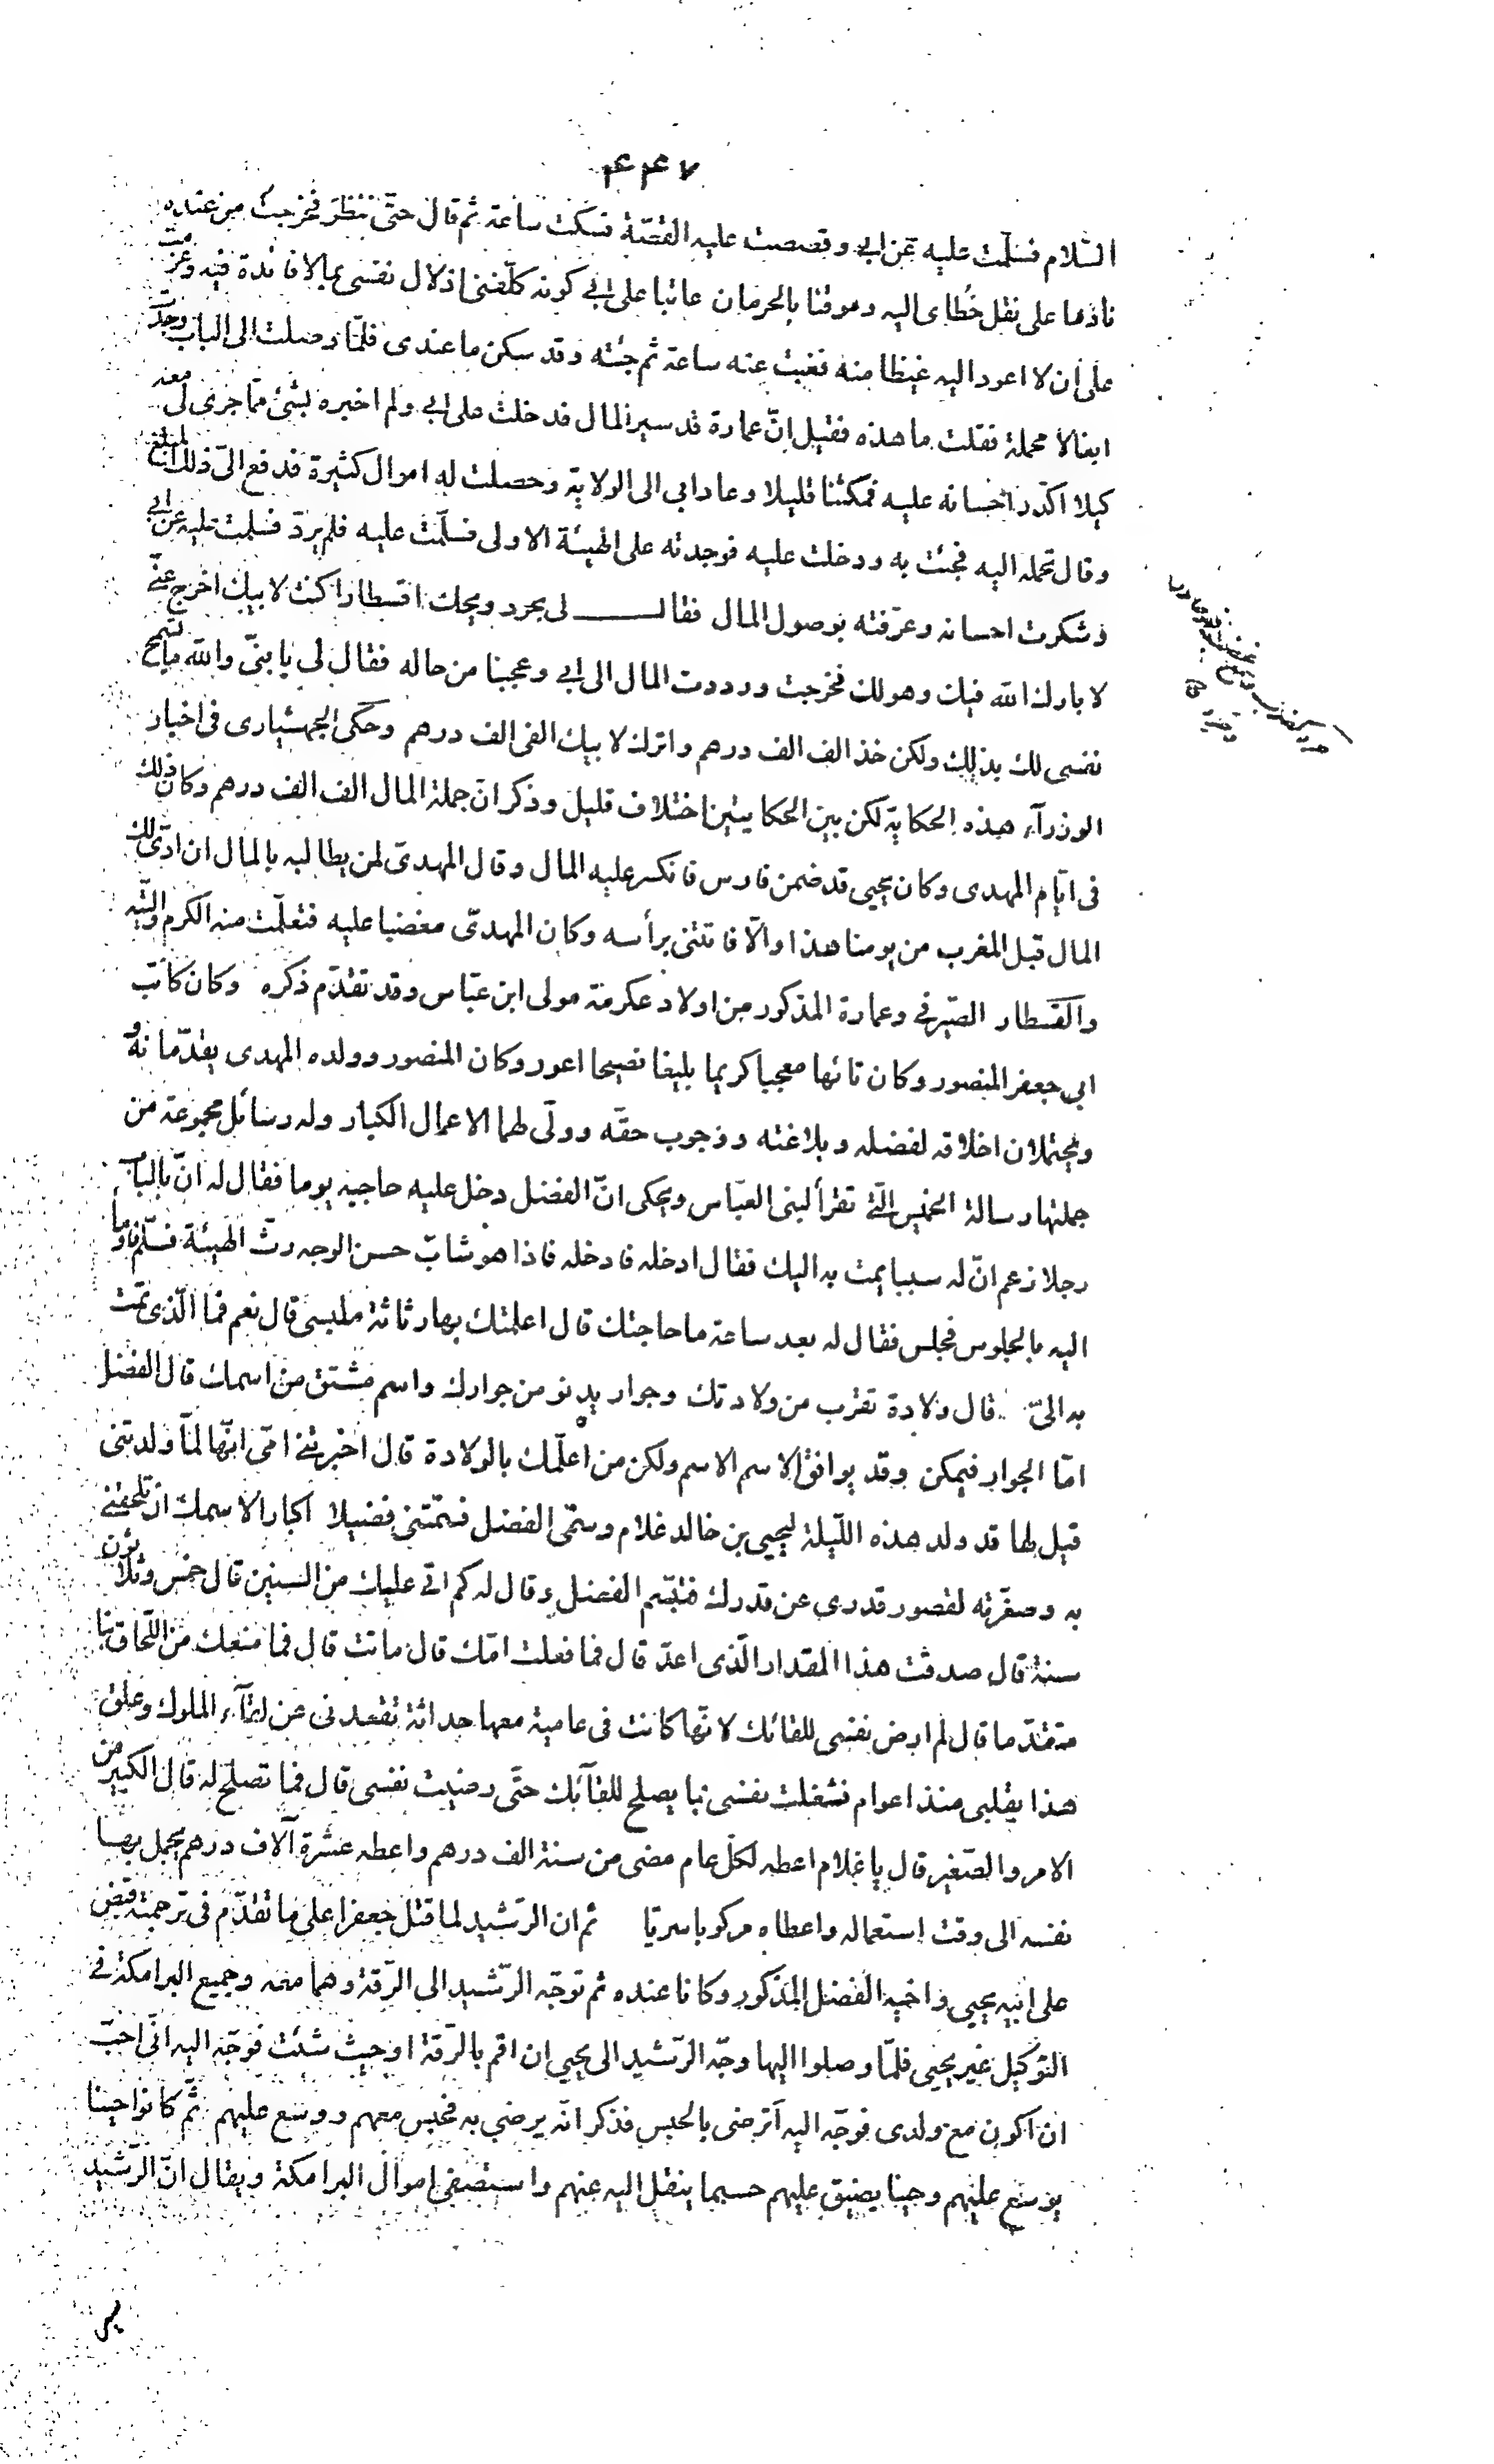 ٤٤٧
السّلام فسلّمت عليه عن ابي وقصصت عليه القصّة فسكت ساعة ثم قال حتّى ننظر فخرجت من عنده
نادما على نقل خُطاى اليه وموقنا بالحرمان عاتبا على ابي كونه كلّفنى اذلال نفسى بما لا فائدة فيه وعزمت
على ان لا اعود اليه غيظا منه فغبت عنه ساعة ثم جئته وقد سكن ما عندى فلمّا وصلت الى الباب وجدت
ابغالا محملة فقلت ما هذه فقيل انّ عمارة قد سير المال فدخلت على ابي ولم اخبره بشئ ممّا جرى لى معه
كيلا اكدّر احسانه عليه فمكثنا قليلا وعاد ابي الى الولاية وحصلت له اموال كثيرة فدفع الىّ ذلك المبلغ
وقال تحمله اليه فجئت به ودخلت عليه فوجدته على الهيئة الاولى فسلّمت عليه فلم يردّ فسلمت عليه عن ابي
وشكرت احسانه وعرّفته بوصول المال فقال لى بحرد ويحك اقسطارا كنت لابيك اخرج عنّى
لا بارك الله فيك وهو لك فخرجت ورددت المال الى ابي وعجبنا من حاله فقال لى يا بنىّ والله ما تسمح
نفسى لك بذلك ولكن خذ الف الف درهم واترك لابيك الفى الف درهم وحكى الجهشيارى فى اخبار
الوزرآء هذه الحكاية لكن بين الحكايتين اختلاف قليل وذكر انّ جملة المال الف الف درهم وكان ذلك
فى ايّام المهدى وكان يحيى قد ضمن فارس فانكسر عليه المال وقال المهدىّ لمن يطالبه بالمال ان ادّى لك
المال قبل المغرب من يومنا هذا والّا فاتنى برأسه وكان المهدىّ مغضبا عليه فتعلّمت منه الكرم والتيه
والقسطار الصّيرفى وعمارة المذكور من اولاد عكرمة مولى ابن عبّاس وقد تقدّم ذكره وكان كاتب
ابي جعفر المنصور وكان تائها معجبا كريما بليغا فصيحا اعور وكان المنصور وولده المهدى يقدّمانه
ويحتملان اخلاقه لفضله وبلاغته ووجوب حقّه وولّى لهما الاعمال الكبار وله رسائل مجموعة من
جملتها رسالة الخميس الّتى تقرأ لبنى العبّاس ويحكى انّ الفضل دخل عليه حاجبه يوما فقال له انّ بالباب
رجلا زعم انّ له سببا يمت به اليك فقال ادخله فادخله فاذا هو شابّ حسن الوجه رثّ الهيئة فسلّم فاوما
اليه بالجلوس فجلس فقال له بعد ساعة ما حاجتك قال اعلمتك بها رثاثة ملبسى قال نعم فما الّذى تمت
به الىّ قال ولادة تقرب من ولادتك وجوار يدنو من جوارك واسم مشتق من اسمك قال الفضل
امّا الجوار فيمكن وقد يوافق الاسم الاسم ولكن من اعلمك بالولادة قال اخبرتنى امّى انّها لمّا ولدتنى
قيل لها قد ولد هذه اللّيلة ليحيى بن خالد غلام وسمّى الفضل فسمّتنى فضيلا اكبارا لاسمك ان تلحقنى
به وصغّرته لقصور قدرى عن قدرك فتبسّم الفضل وقال له كم اتى عليك من السنين قال خمس وثلاثون
سنة قال صدقت هذا المقدار الّذى اعدّ قال فما فعلت امّك قال ماتت قال فما منعك من اللّحاق بنا
متقدّما قال لم ارض نفسى للقائك لانّها كانت فى عامية معها حداثة تقعدنى عن لقآء الملوك وعلق
هذا بقلبى منذ اعوام فشغلت نفسى بما يصلح للقآئك حتّى رضيت نفسى قال فما تصلح له قال الكبير من
الامر والصّغير قال يا غلام اعطه لكلّ عام مضى من سنة الف درهم واعطه عشرة آلاف درهم يجمل بها
نفسه الى وقت استعماله واعطاه مركوبا سريّا ثم ان الرّشيد لما قتل جعفرا على ما تقدّم فى ترجمته قبض
على ابيه يحيى واخيه الفضل المذكور وكانا عنده ثم توجّه الرّشيد الى الرّقة وهما معه وجميع البرامكة فى
التوكيل غير يحيى فلمّا وصلوا اليها وجّه الرّشيد الى يحيى ان اقم بالرّقة او حيث شئت فوجّه اليه انّى احبّ
ان اكون مع ولدى فوجّه اليه اترضى بالحبس فذكر انّه يرضى به فحبس معهم ووسّع عليهم ثمّ كانوا حينا
يوسّع عليهم وحينا يضيّق عليهم حسبما ينقل اليه عنهم واستصفى اموال البرامكة ويقال انّ الرّشيد